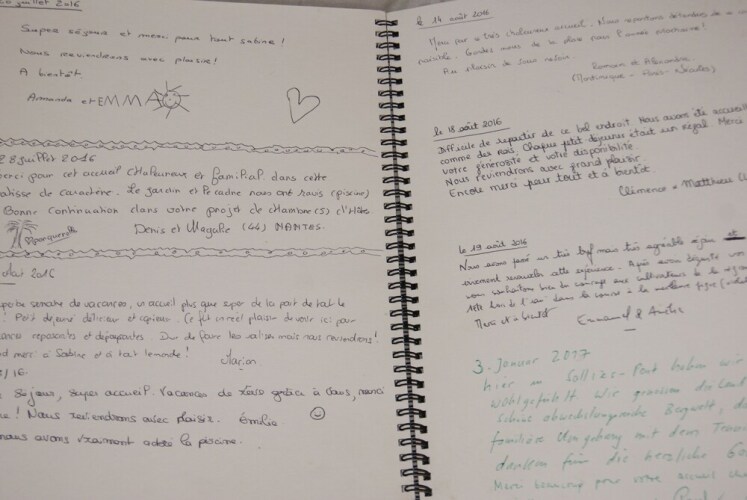 juillet 2016
Super séjour et merci pour tout Sabine !
Nous reviendrons avec plaisir !
A bientôt
Amanda et EMMA
28 Juillet 2016
merci pour cet accueil chaleureux et familial dans cette
de caractère. Le jardin et le cadre nous ont ravis (piscine)
Bonne continuation dans votre projet de chambre(s) d'Hôtes.
Denis et Magalie (44) NANTES.
2016
semaine de vacances, un accueil plus que super de la part de tout le
! Petit déjeuné délicieux et copieux. Ce fut un réel plaisir de venir ici pour
vacances reposantes et dépaysantes. Dur de faire les valises mais nous reviendrons !
merci à Sabine et à tout le monde ! Marion
/16.
Séjour, super accueil. Vacances de rêve grâce à vous, merci
! Nous reviendrons avec plaisir. Émilie
nous avons vraiment adoré la piscine.
le 14 août 2016
Merci pour ce très chaleureux accueil. Nous repartons détendus de ce
paisible. Gardez nous de la place pour l'année prochaine !
Au plaisir de vous revoir.
Romain et Alexandra
(Martinique - Paris - )
le 18 août 2016
Difficile de repartir de ce bel endroit. Nous avons été accueilli
comme des rois. Chaque petit déjeuner était un régal. Merci
votre générosité et votre disponibilité.
Nous reviendrons avec grand plaisir.
Encore merci pour tout et à bientôt.
Clémence & Matthieu
le 19 août 2016
Nous avons passé un très bref mais très agréable séjour et
cette expérience. Après avoir dégusté vos
de la région
dans la à la meilleure figue
Merci et à bientôt Emmanuel &
3. Januar 2017
hier in Solliès-Pont haben wir
wohlgefühlt. Wir genossen die
schöne abwechslungsreiche Bergwelt, die
familiäre Umgebung mit dem
danken für die herzliche
Merci beaucoup pour votre accueil